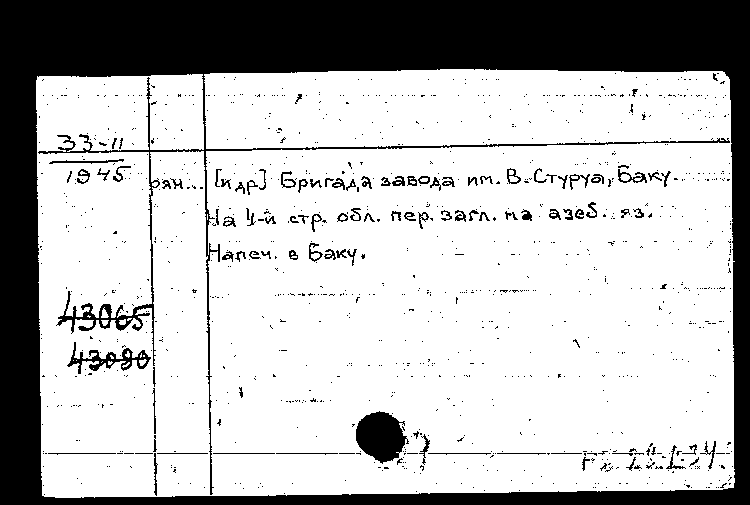 33-11
1945
рян... [и др] Бригада завода им. В. Стуруа, Баку.
На 4-й стр. обл. пер. загл. на азеб. яз.
Напеч. в Баку.
43065
43090